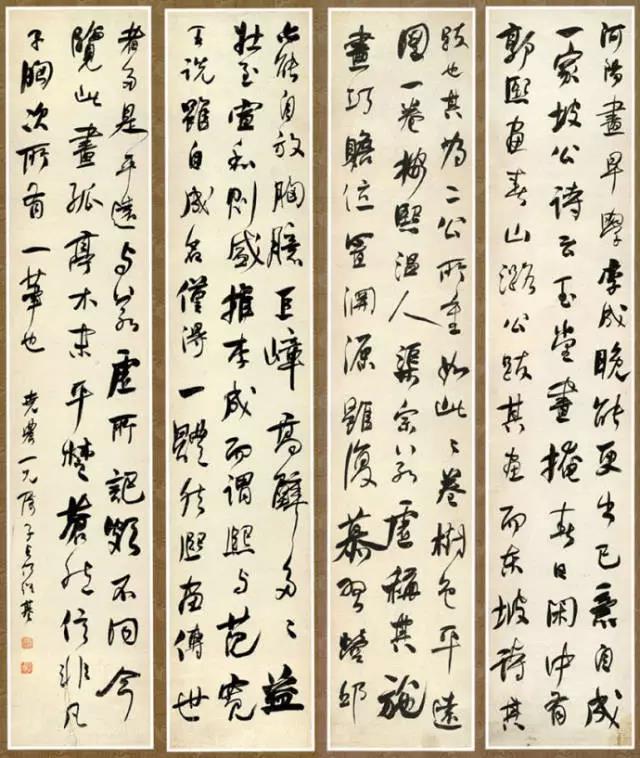 河陽畫早學李成晚能更出己意自成
一家坡公詩云玉堂晝掩春日閑中有
郭熙畫春山潞公跋其畫而東坡詩其
跋也其為二公所重如此〻卷樹色平遠
圖一卷按熙溫人渠宗若虛稱其施
畫巧贍位置淵源雖復慕習營邱
亦能自放胸臆巨嶂高壁多〻益
壯至宣和則盛推李成而謂熙与范寬
王說雖自成名僅得一體然熙畫傳世
者多是平遠与若虛所記頗不同今
覽此畫孤亭木末平楚蒼然信非凡
子胸次所有一筆也 堯農一兄屬 子貞何紹基